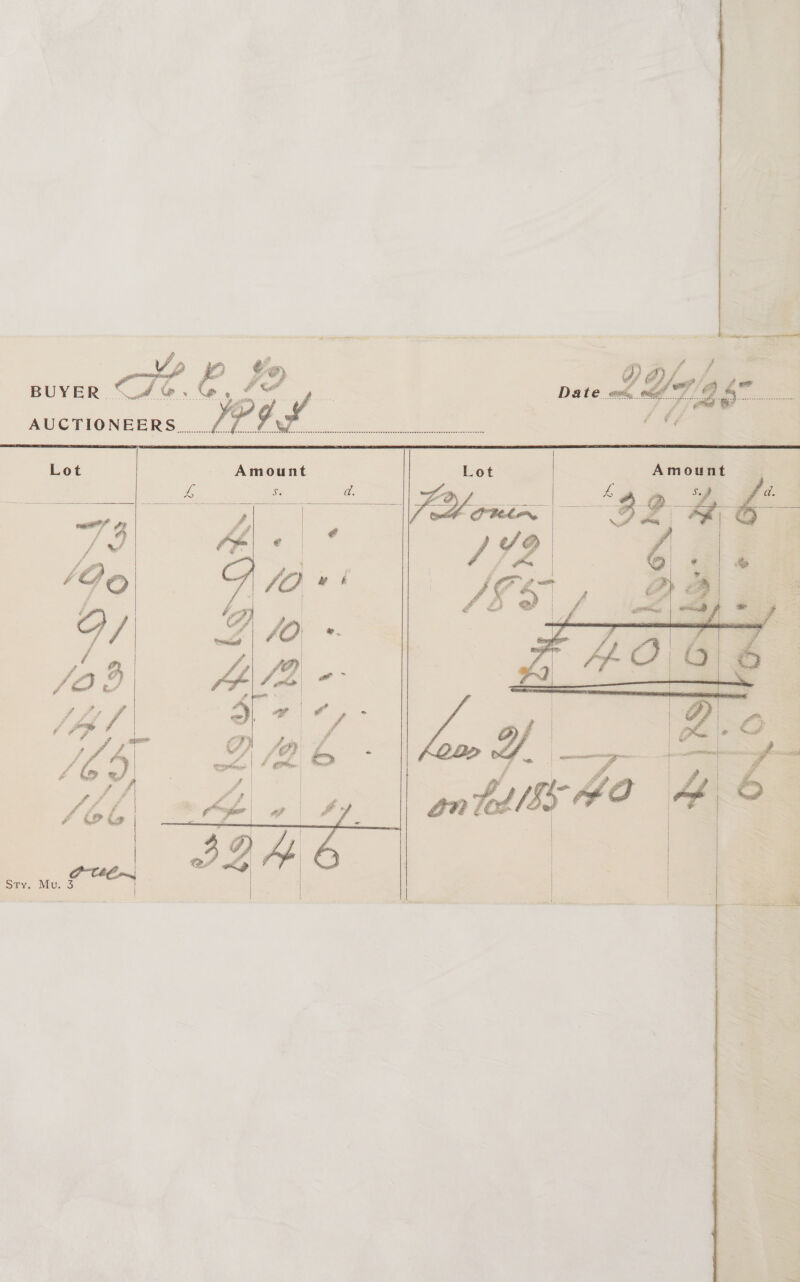 BUYER
Date 22/7/25
AUCTIONEERS
Lot Amount Lot Amount
£ s. d. £ s. d.
32 4 6
73 4 . .
142 6 . .
90 9 10 .
185 2 2 .
91 2 10 .
£ 40 6 6
103 4 12 -
141 3 . .
Less 2/. 2.0
165 2 12 6
on lot 185 40 4 6
166 4 . .
32 4 6
over
Sty. Mu. 3